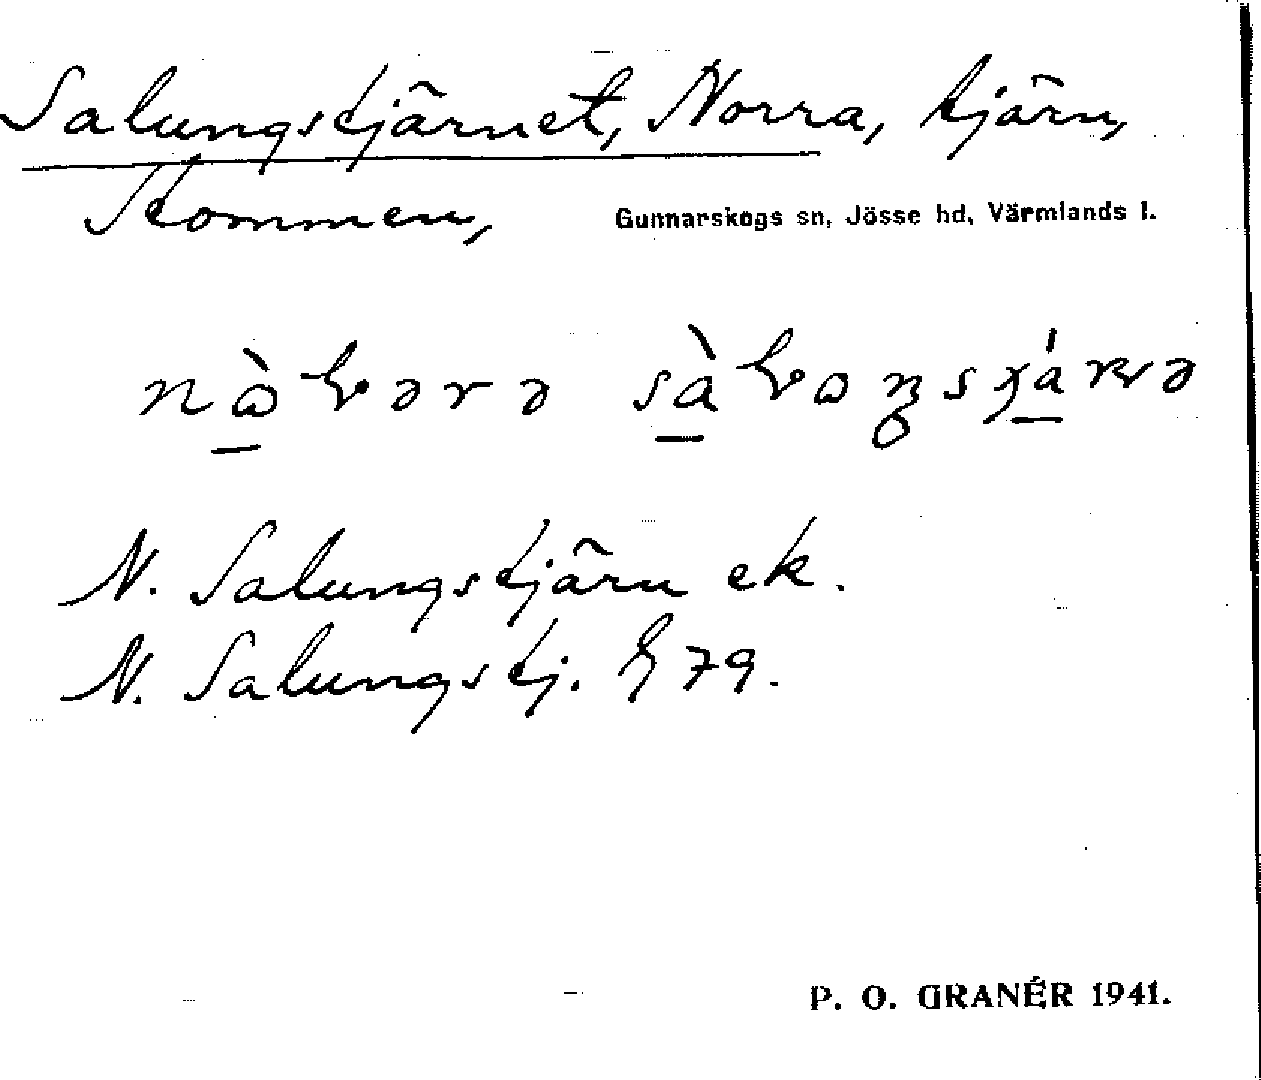 Salungstjärnet, Norra, tjärn,
Stommen, Gunnarskogs sn, Jösse hd, Värmlands l.
N. Salungstjärn ek.
N. Salungstj. 79.
P. O. GRANÉR 1941.